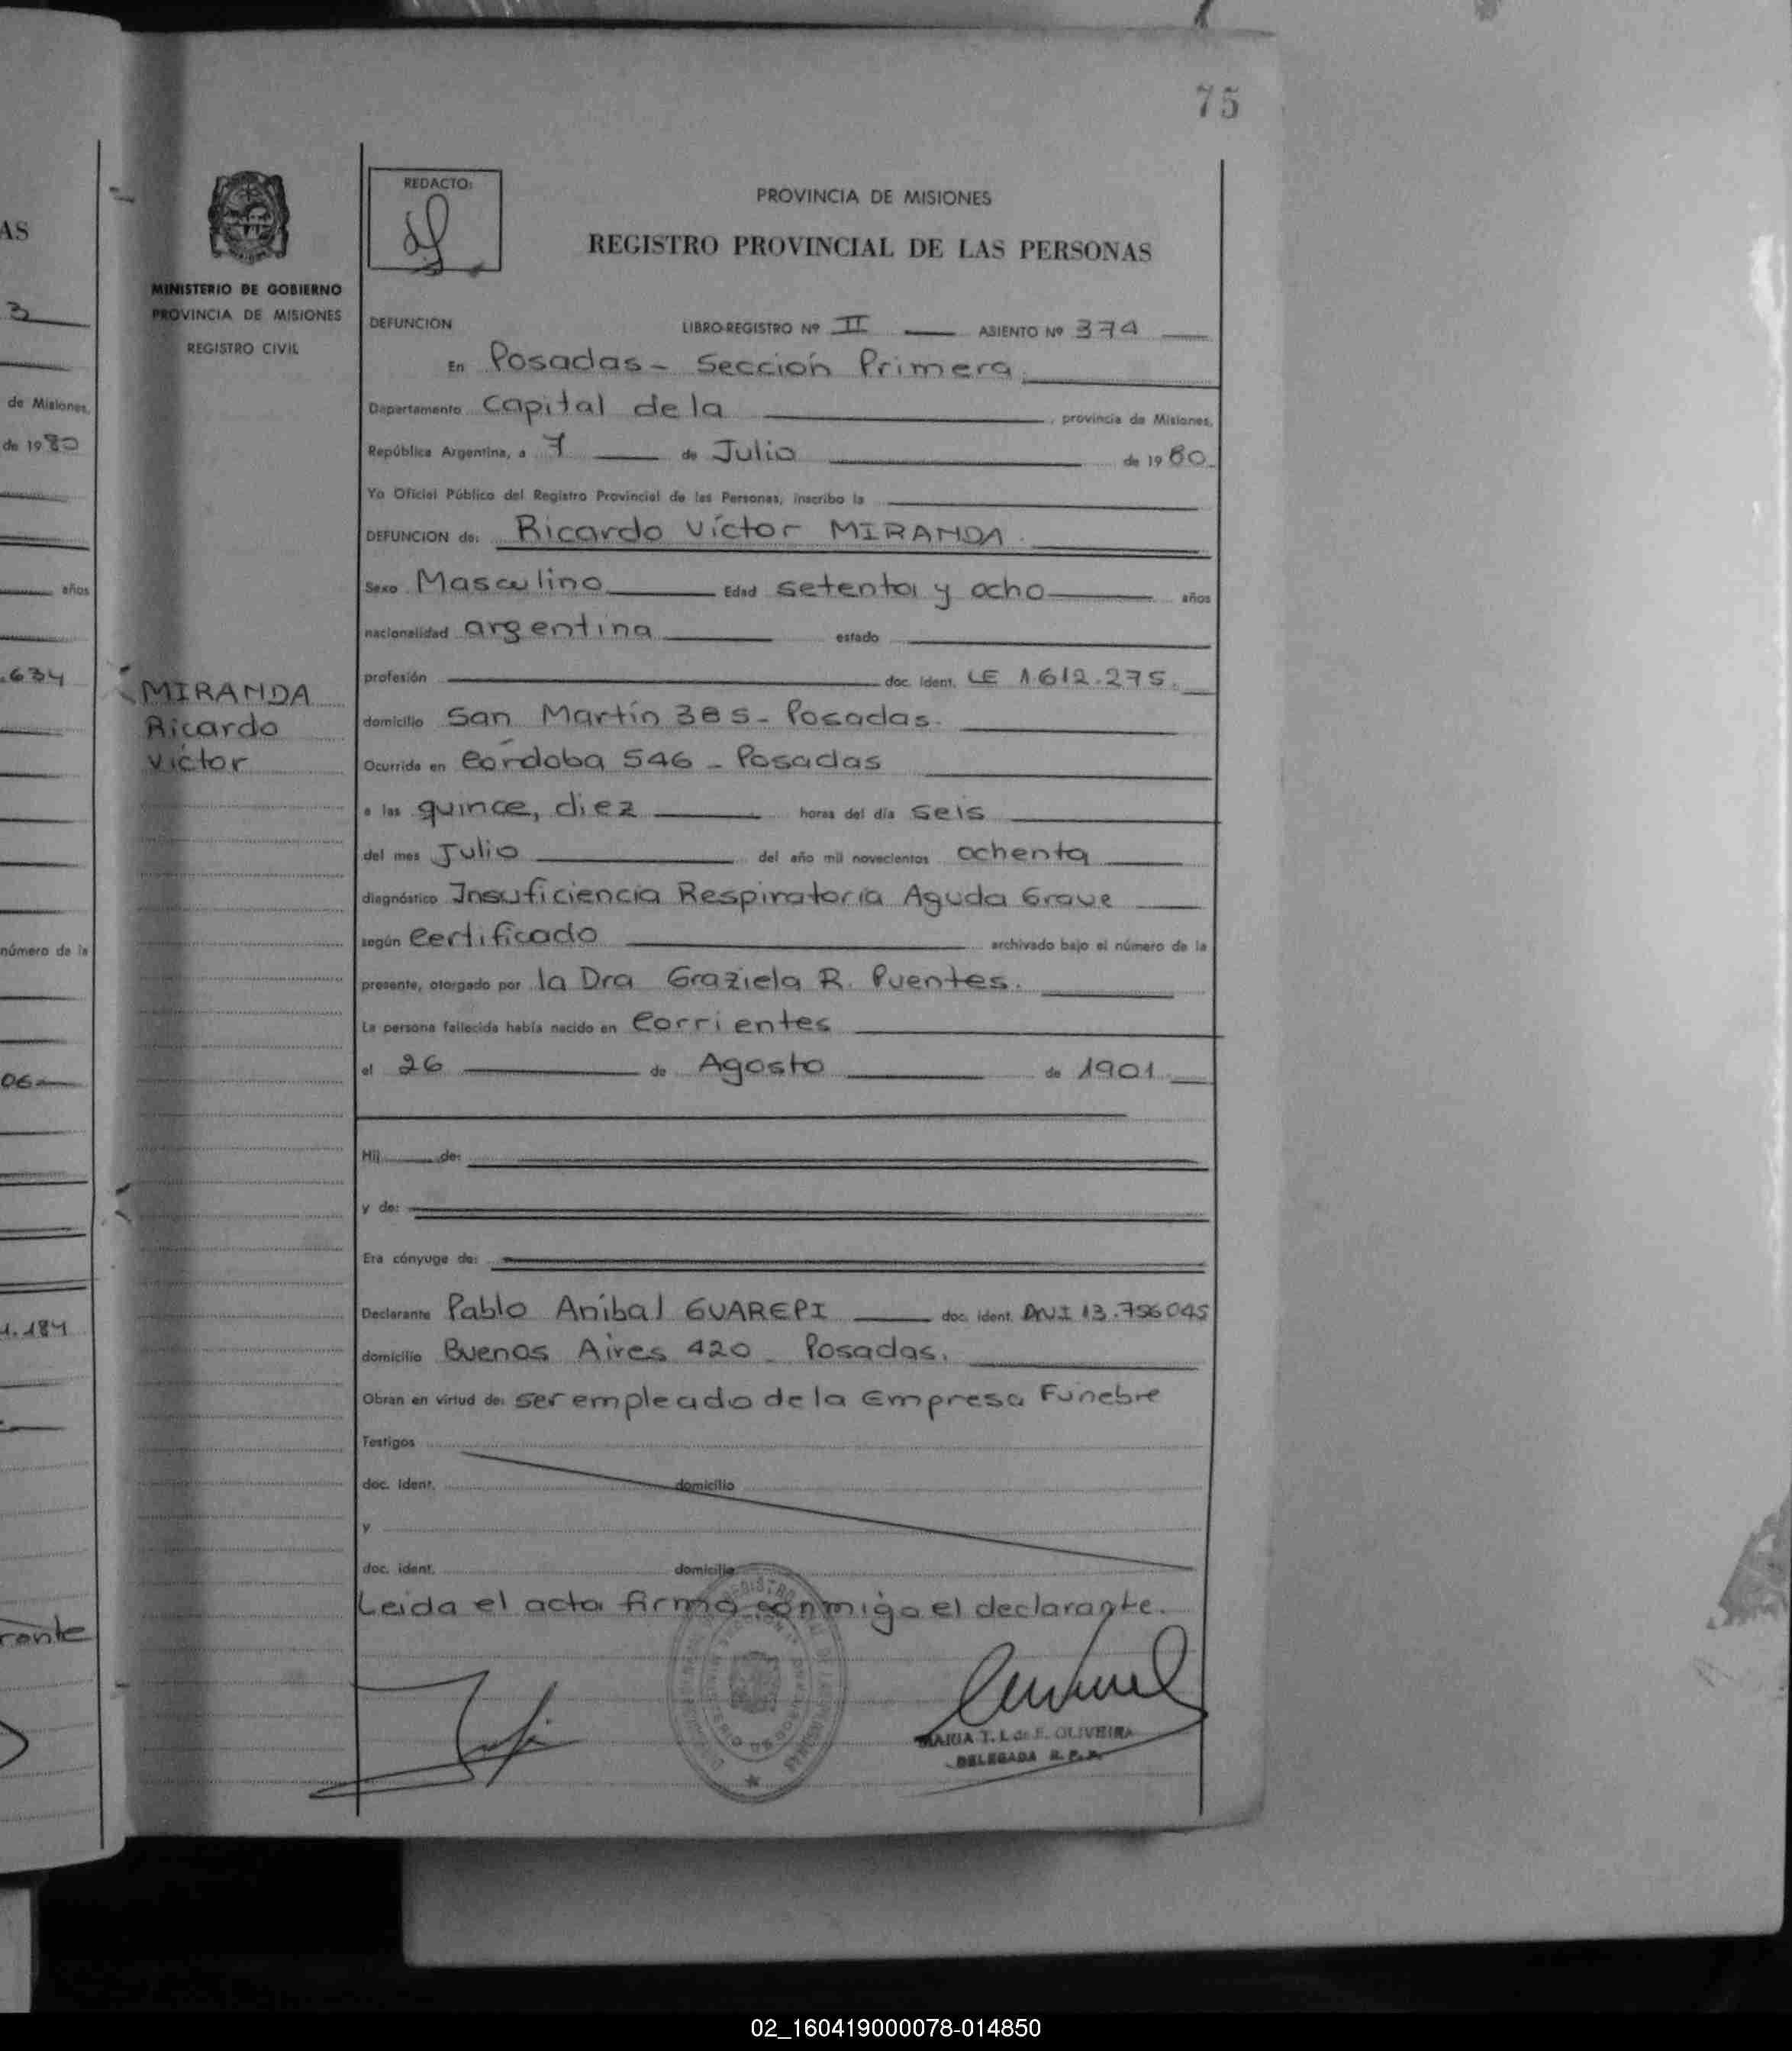 75
AS
3
de Misiones,
de 1980
años
.634
número de la
06
1.184
rante
MINISTERIO DE GOBIERNO
PROVINCIA DE MISIONES
REGISTRO CIVIL
MIRANDA
Ricardo
Víctor
REDACTO:
PROVINCIA DE MISIONES
REGISTRO PROVINCIAL DE LAS PERSONAS
DEFUNCION LIBRO-REGISTRO Nº II ASIENTO Nº 374
En Posadas - Sección Primera
Departamento Capital de la , provincia de Misiones,
República Argentina, a 7 de Julio de 1980.
Yo Oficial Público del Registro Provincial de las Personas, inscribo la
DEFUNCION de: Ricardo Víctor MIRANDA.
Sexo Masculino Edad setenta y ocho años
nacionalidad argentina estado
profesión doc. Ident. LE 1.612.275.
domicilio San Martín 385 - Posadas.
Ocurrida en Córdoba 546 - Posadas
a las quince, diez horas del día seis
del mes Julio del año mil novecientos ochenta
diagnóstico Insuficiencia Respiratoria Aguda Grave
según Certificado archivado bajo el número de la
presente, otorgado por la Dra Graziela R. Puentes.
La persona fallecida había nacido en Corrientes
el 26 de Agosto de 1901
Hij de:
y de:
Era cónyuge de:
Declarante Pablo Aníbal GUAREPI doc. ident. DNI 13.756045
domicilio Buenos Aires 420 - Posadas.
Obran en virtud de: ser empleado de la Empresa Fúnebre
Testigos
doc. Ident. domicilio
y
doc. ident. domicilio
Leida el acta firma conmigo el declarante.
MARIA T. L. de F. OLIVEIRA
DELEGADA R. P. P.
02_160419000078-014850